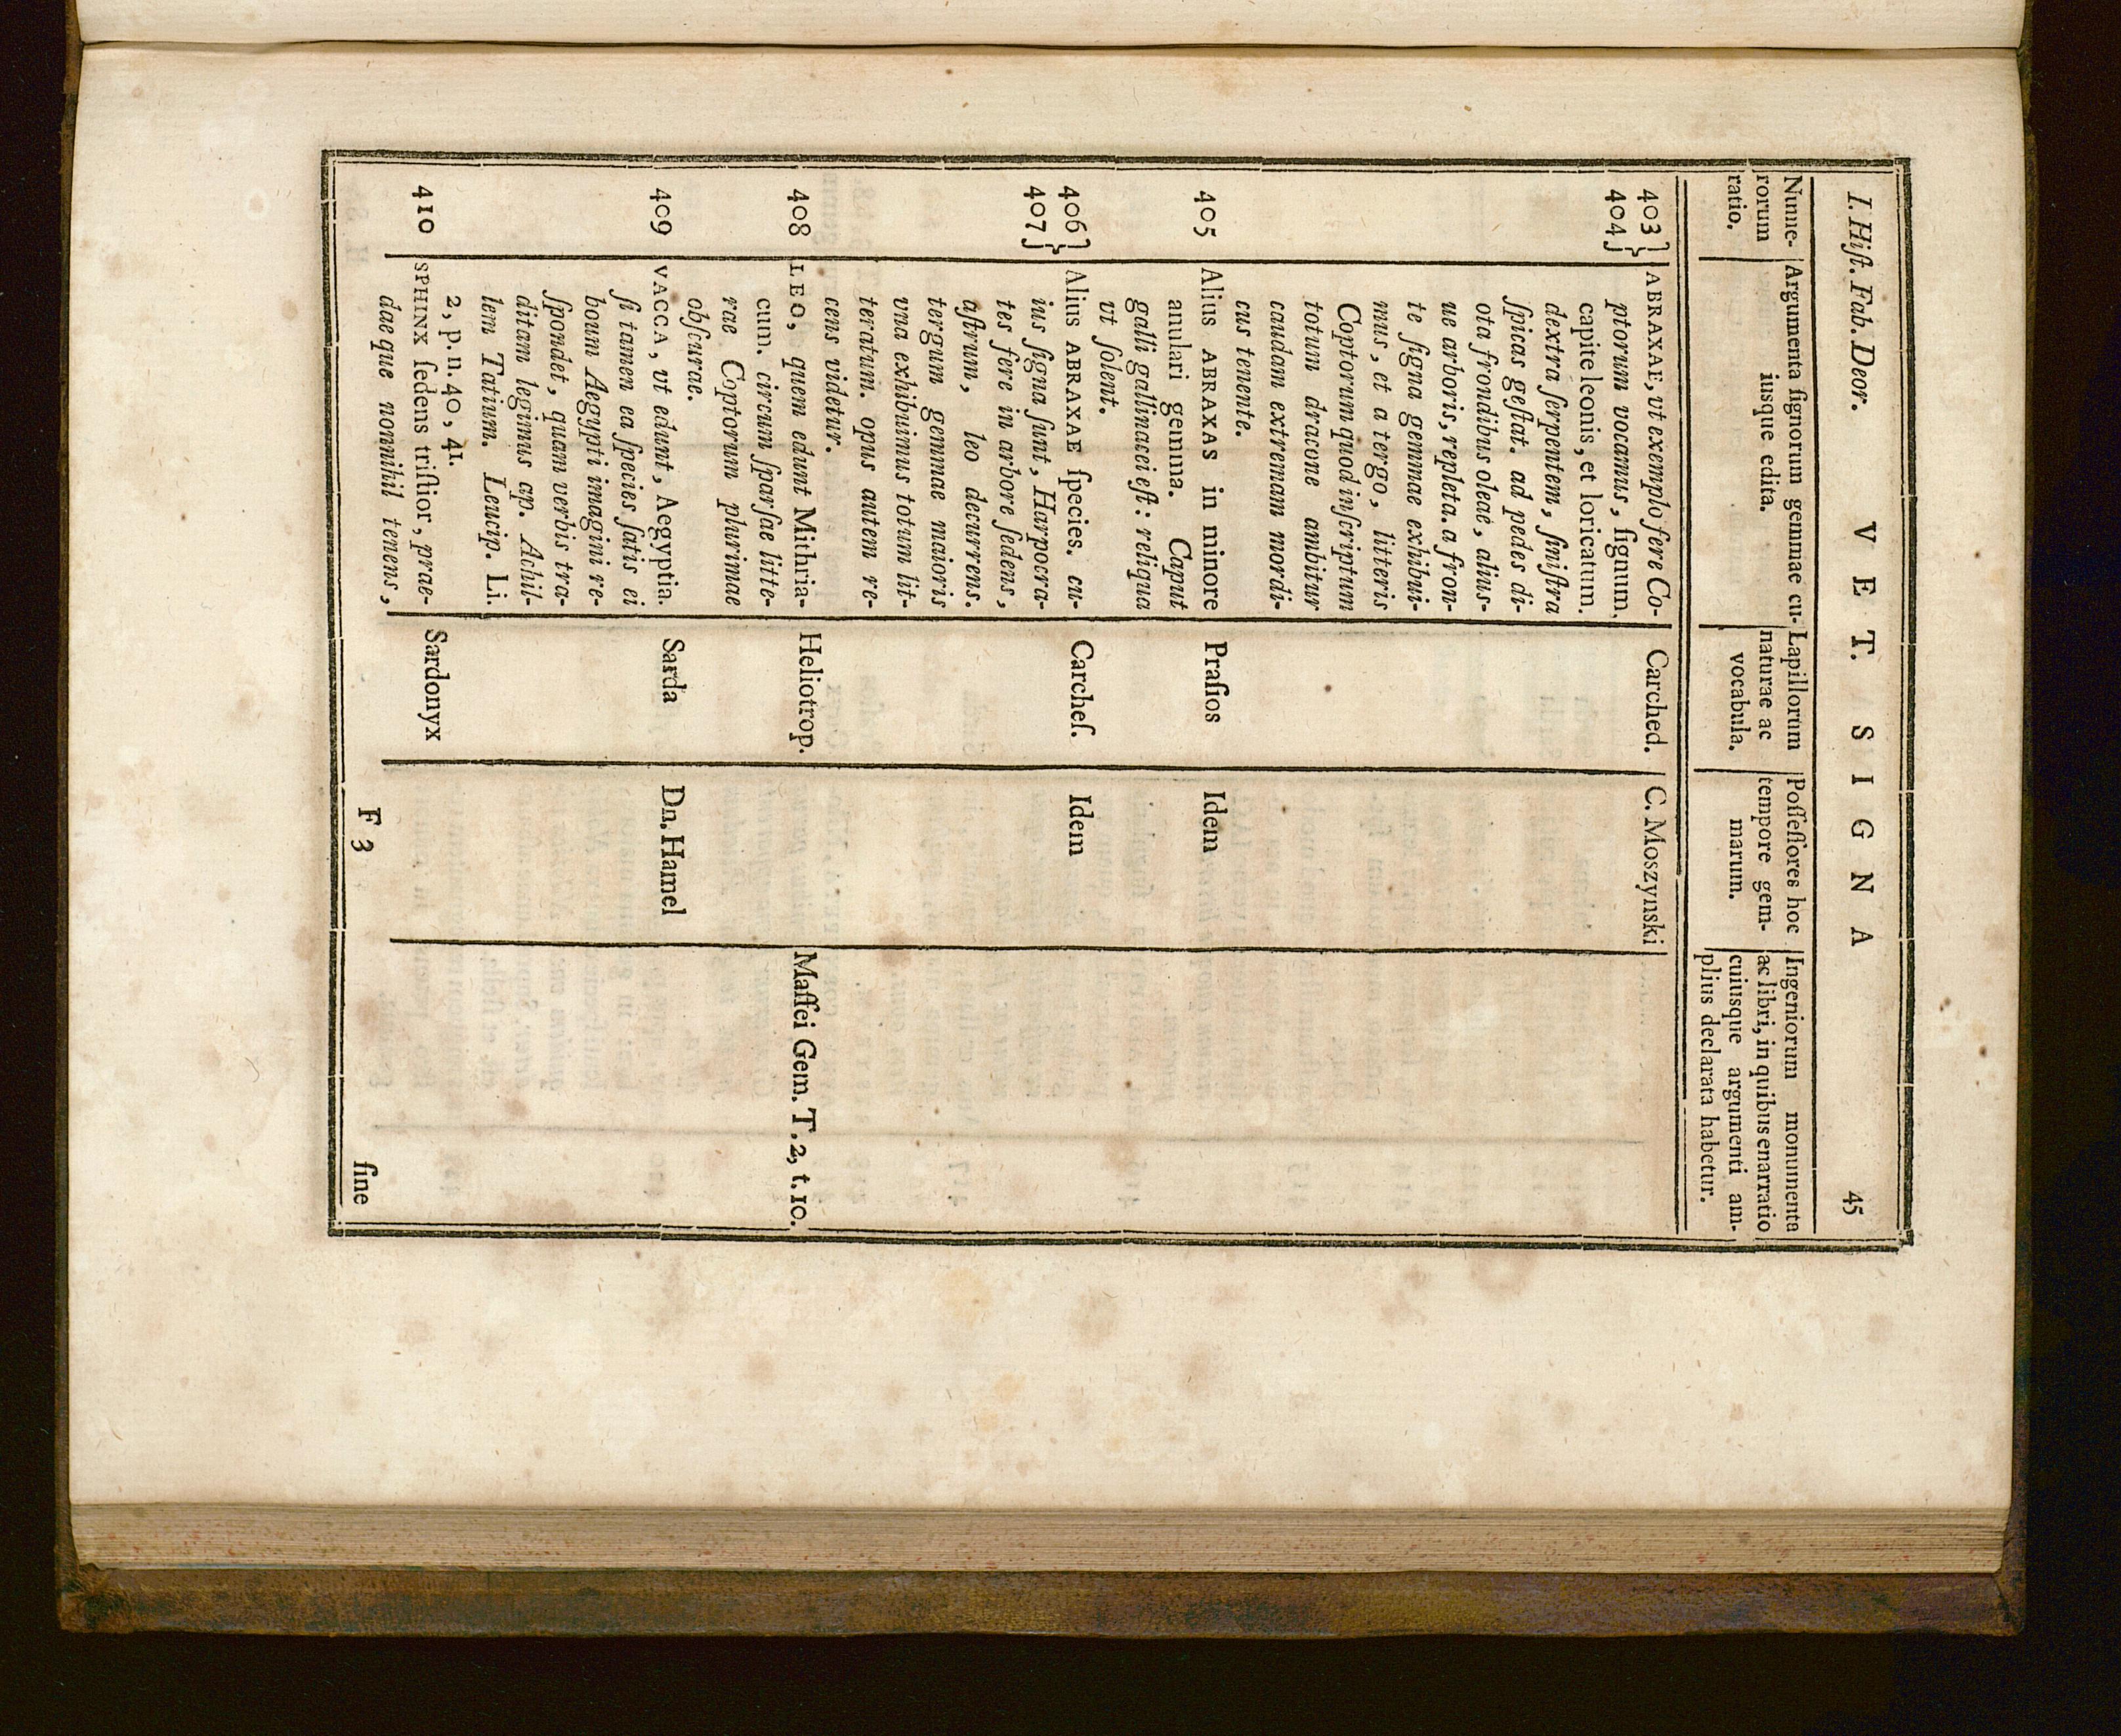 I. Hiſt. Fab. Deor. VET. SIGNA 45
Nume-
rorum
ratio.
Argumenta ſignorum gemmae cu-
iusque edita.
Lapillorum
naturae ac
vocabula.
Poſſeſſores hoc
tempore gem-
marum.
Ingeniorum monumenta
ac libri, in quibus enarratio
cuiusque argumenti am-
plius declarata habetur.
403 } ABRAXAE, vt exemplo fere Co- Carched. C. Moszynski
404 } ptorum vocamus, ſignum,
capite leonis, et loricatum.
dextra ſerpentem, ſiniſtra
ſpicas geſtat. ad pedes di-
ota frondibus oleae, alius-
ue arboris, repleta. a fron-
te ſigna gemmae exhibui-
mus, et a tergo, literis
Coptorum quod inſcriptum
totum dracone ambitur
caudam extremam mordi-
cus tenente.
405 Alius ABRAXAS in minore Praſios Idem
anulari gemma. Caput
galli gallinacei eſt: reliqua
vt ſolent.
406 } Alius ABRAXAE ſpecies. cu- Carcheſ. Idem
407 } ius ſigna ſunt, Harpocra-
tes fere in arbore ſedens,
aſtrum, leo decurrens.
tergum gemmae maioris
vna exhibuimus totum lit-
teratum. opus autem re-
cens videtur.
408 LEO, quem edunt Mithria- Heliotrop. Maffei Gem. T. 2, t. 10.
cum. circum ſparſae litte-
rae Coptorum plurimae
obſcurae.
409 VACCA, vt edunt, Aegyptia. Sarda Dn. Hamel
ſi tamen ea ſpecies ſatis ei
boum Aegypti imagini re-
ſpondet, quam verbis tra-
ditam legimus ap. Achil-
lem Tatium. Leucip. Li.
2, p. n. 40, 41.
410 SPHINX ſedens triſtior, prae- Sardonyx
dae que nonnihil tenens,
F 3 ſine